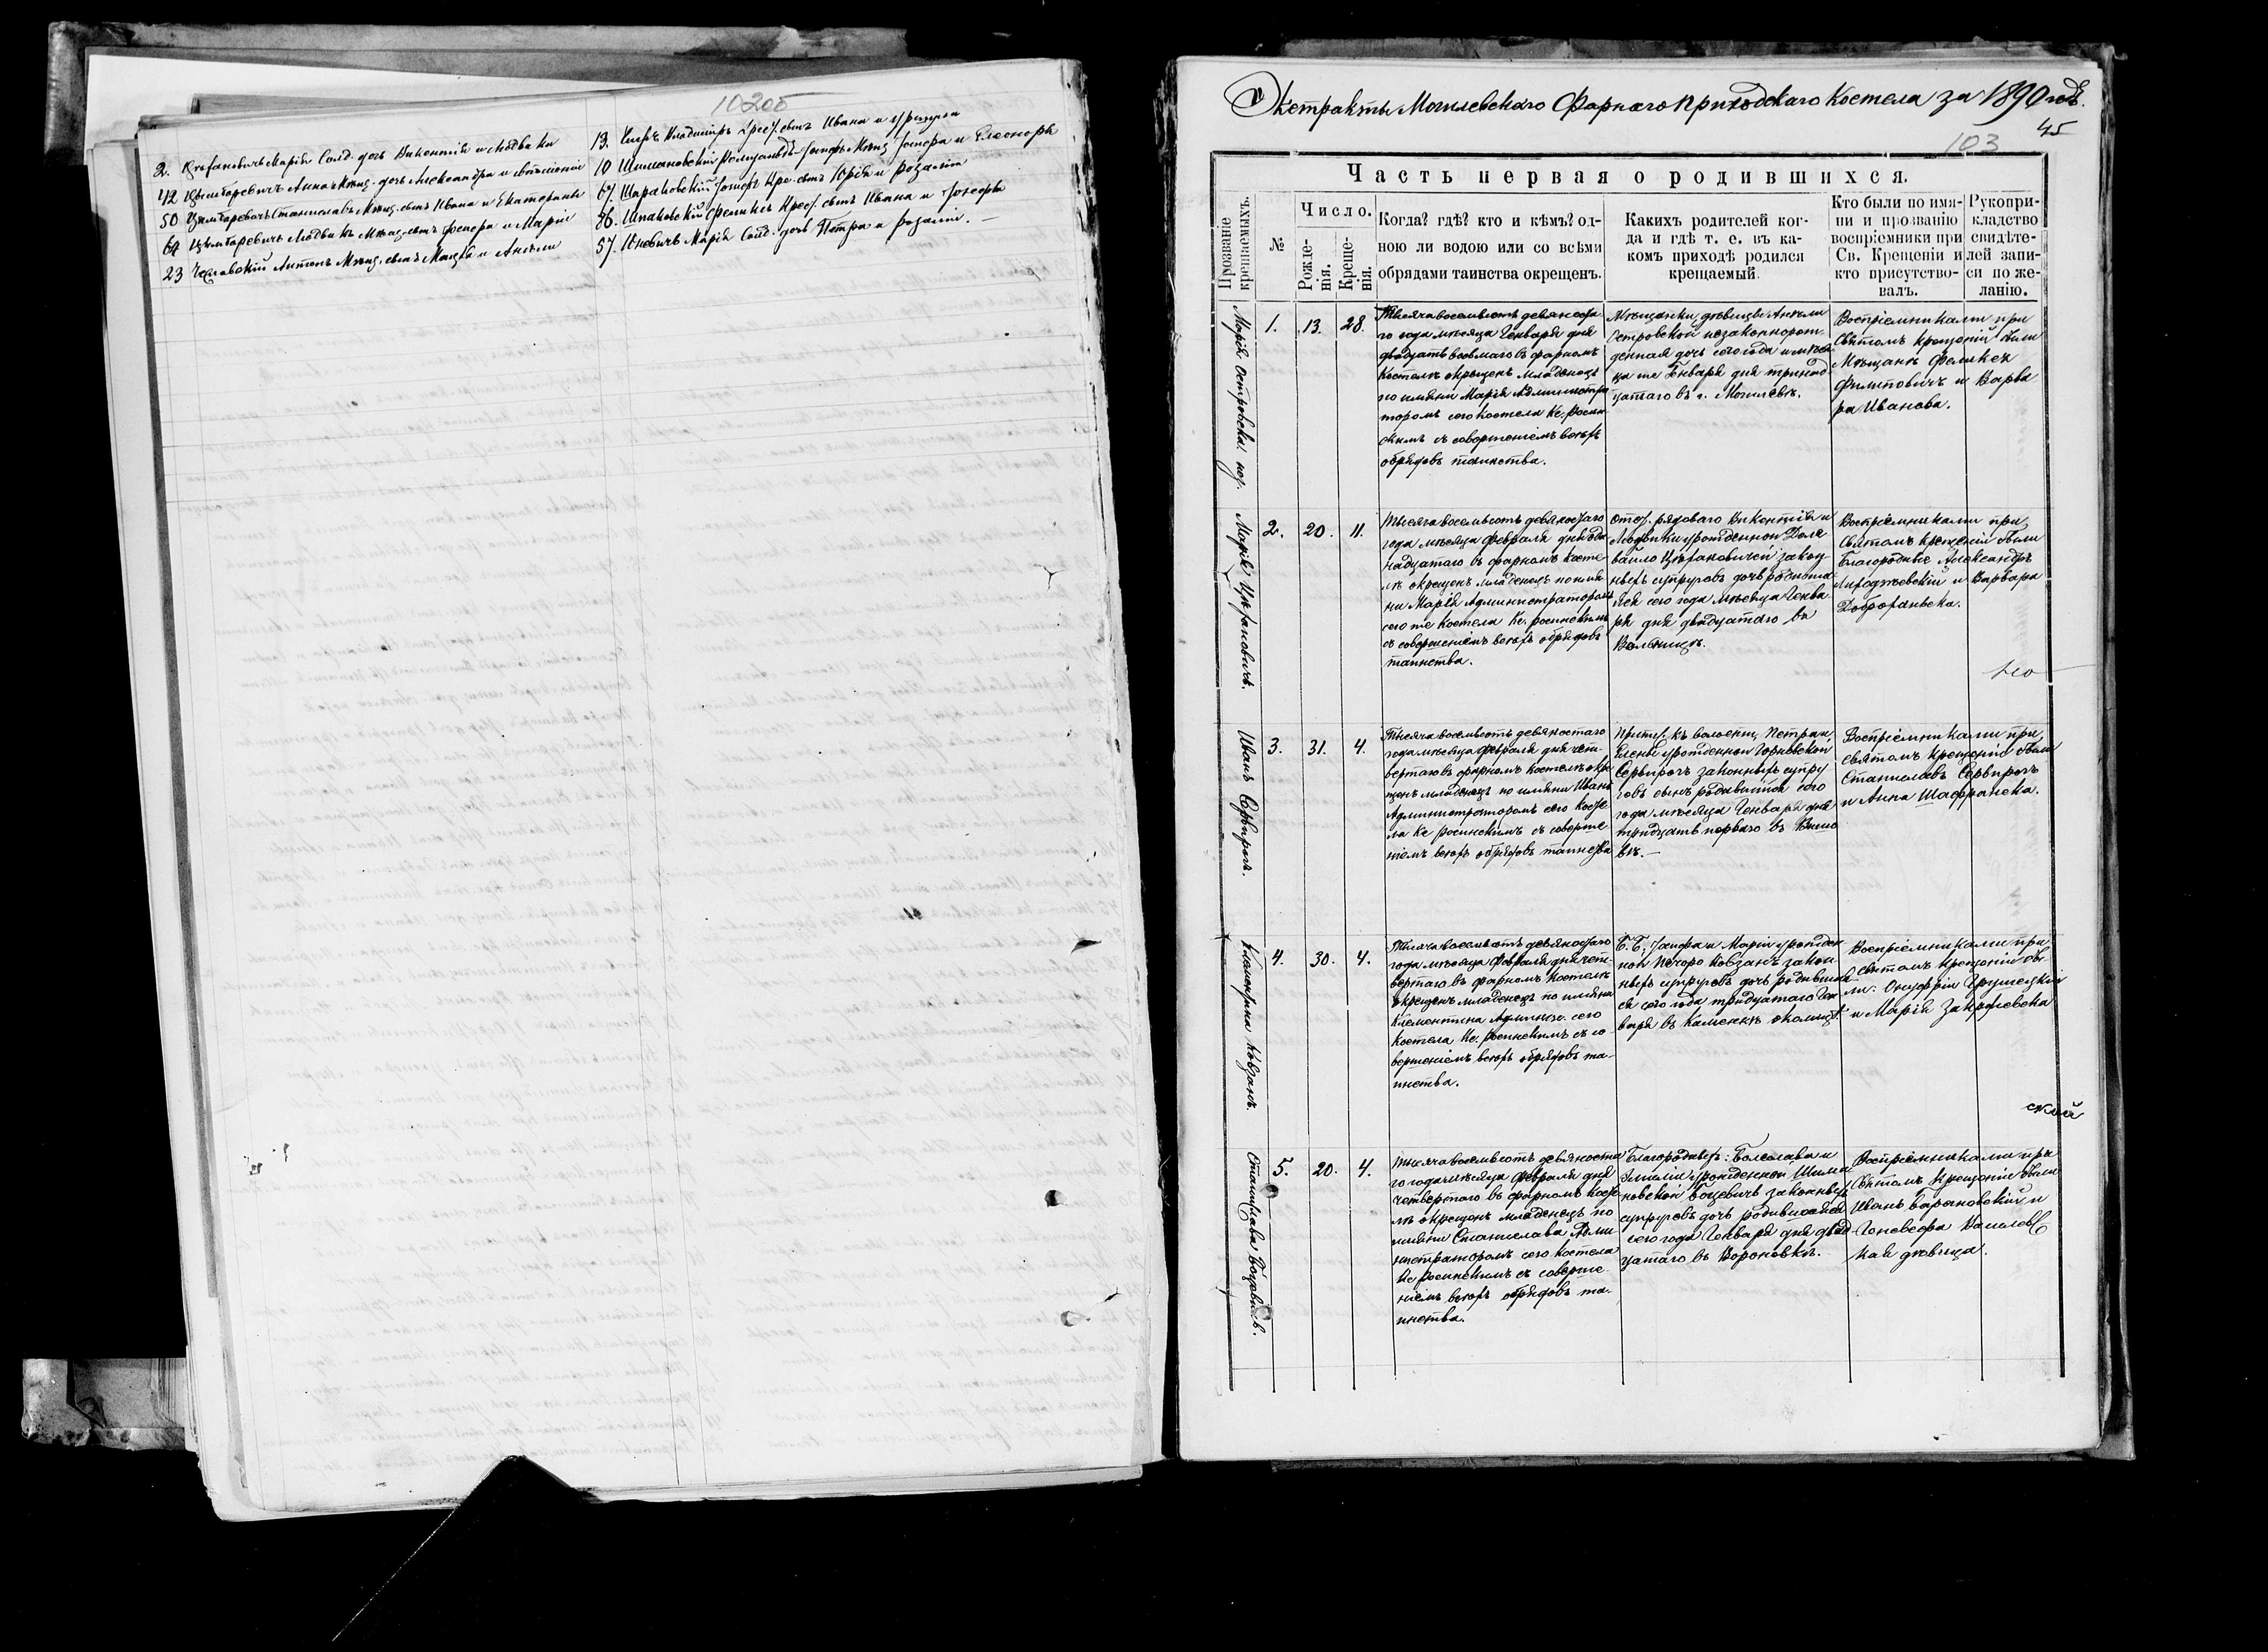 102об
2. Цѣхановичъ Марія Солд. дочь Викентія и Людвики
42 Цымборевичъ Анна Мѣщ. дочь Александра и
50 Цымборевичъ Станиславъ Мѣщ. сынъ Ивана и Екатерины
64 Цымборевичъ Людвикъ Мѣщ. сынъ и Маріи
23 Антонъ Мѣщ. сынъ и Анели
13. Владиміръ Крест. сынъ Ивана и
10 Шимановскій Іосифъ Мѣщ. Іосифа и Елеоноры
67. Іосифъ Кре. сынъ Юрія и Розаліи
36. Шпаковскій Феликсъ Крест. сынъ Ивана и Іозефы
57. Марія Солд. дочь Петра и Розаліи. —
Экстракты Могилевскаго Фарнаго приходскаго Костела за 1890 годъ.
45
103
Часть первая о родившихся.
Прозваніе крещаемыхъ.
№
Число.
Рожде-
нія.
Креще-
нія.
Когда? гдѣ? кто и кѣмъ? од-
ною ли водою или со всѣми
обрядами таинства окрещенъ.
Какихъ родителей ког-
да и гдѣ т. е. въ ка-
комъ приходѣ родился
крещаемый.
Кто были по имя-
ни и прозванію
воспріемники при
Св. Крещеніи и
кто присутство-
валъ.
Рукопри-
кладство
свидѣте-
лей запи-
си по же-
ланію.
Марія Островска нез.
1. 13. 28.
Тысяча восемьсотъ девяноста-
го года мѣсяца Генваря дня
двадцать восьмаго въ фарномъ
Костелѣ окрещенъ младенецъ
по имяни Марія Администра
торомъ сего Костела Кс. Росин
скимъ съ совершеніемъ всѣхъ
обрядовъ таинства.
Мѣщанки дѣвицы Анели
Островской незаконнорож
денная дочь сего года и мѣся
ца же Генваря дня тринад
цатаго въ г. Могилевѣ.
Воспріемниками при
Святомъ Крещеніи были
Мѣщане Феликсъ
Филиповичъ и Варва
ра Иванова.
Марія Цѣхановичъ.
2. 20. 11.
Тысяча восемьсотъ девяностаго
года мѣсяца Февраля дня оди
надцатаго въ фарномъ Косте
лѣ окрещенъ младенецъ по имя
ни Марія Администраторомъ
сего же Костела Кс. Росинскимъ
съ совершеніемъ всѣхъ обрядовъ
таинства.
Отст. рядоваго Викентія и
Людвики урожденной Дов
вайло Цѣхановичей закон
ныхъ супруговъ дочь родивша
яся сего года мѣсяца Генва
ря дня двадцатаго въ
Воспріемниками при
Святомъ Крещеніи были
Благородные Александръ
и Варвара
Иванъ Сервирогъ.
3. 31. 4.
Тысяча восемьсотъ девяностаго
года мѣсяца Февраля дня чет-
вертаго въ фарномъ Костелѣ окре
щенъ младенецъ по имяни Иванъ
Администраторомъ сего Косте
ла Кс Росинскимъ съ соверше
ніемъ всѣхъ обрядовъ таинства
Петра и
Елены урожденной
Сервирогъ законныхъ супру
говъ сынъ родившійся сего
года мѣсяца Генваря дня
тридцать перваго въ
Воспріемниками при
святомъ Крещеніи были
Станиславъ Сервирогъ
и Анна Шафранска.
Клементина Ковзанъ.
4. 30. 4.
Тысяча восемьсотъ девяностаго
года мѣсяца Февраля дня чет-
вертаго въ фарномъ Костелѣ
окрещенъ младенецъ по имяни
Клементина Админис. сего
Костела Кс. Росинскимъ съ со
вершеніемъ всѣхъ обрядовъ та-
инства.
Б. Б. Іосифа и Маріи урожден
ной Ковзанъ закон
ныхъ супруговъ дочь родивша
ся сего года тридцатаго Ген
варя въ Каменкѣ
Воспріемниками при
святомъ Крещеніи бы-
ли: Онуфрій Грушецкій
и Марія Закржевска
скій
Станислава Боцевичъ.
5. 20. 4.
Тысяча восемьсотъ девяноста
го года мѣсяца Февраля дня
четвертаго въ фарномъ Косте
лѣ окрещенъ младенецъ по
имяни Станислава Адми
нистраторомъ сего Костела
Кс Росинскимъ съ соверше
ніемъ всѣхъ обрядовъ та-
инства.
Благородныхъ: Болеслава и
Эмиліи урожденной Шима
новской Боцевичъ законныхъ
супруговъ дочь родившаяся
сего года Генваря дня двад
цатаго въ Вороновкѣ.
Воспріемниками при
Святомъ Крещеніи были
Иванъ Барановскій и
Геновефа
кая дѣвица.